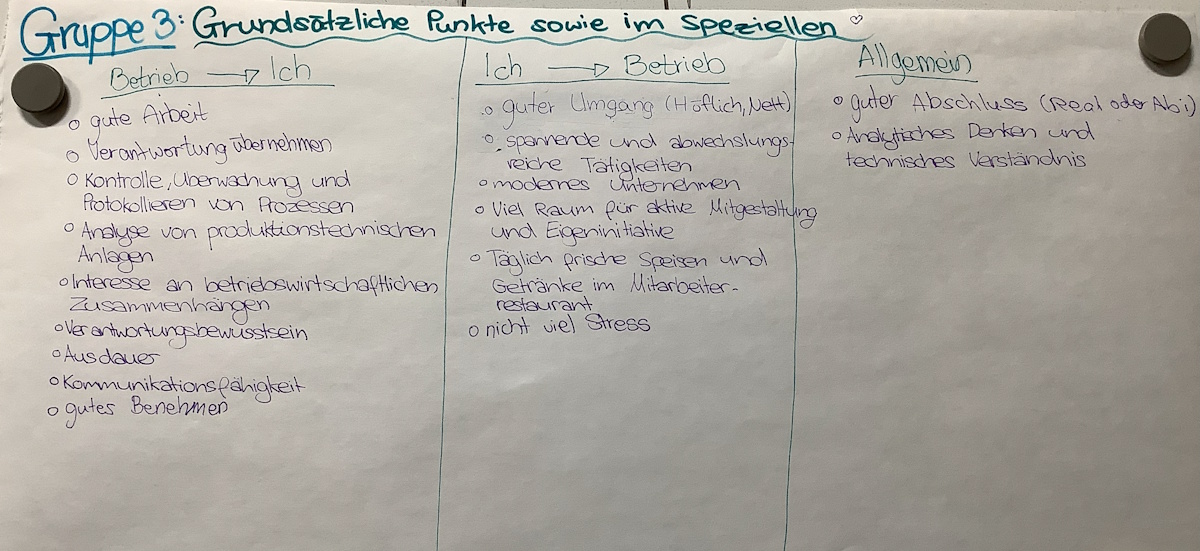 Gruppe 3: Grundsätzliche Punkte sowie im Speziellen ♡
Betrieb → Ich
o gute Arbeit
o Verantwortung übernehmen
o Kontrolle, Überwachung und
Protokollieren von Prozessen
o Analyse von produktionstechnischen
Anlagen
o Interesse an betriebswirtschaftlichen
Zusammenhängen
o Verantwortungsbewusstsein
o Ausdauer
o Kommunikationsfähigkeit
o gutes Benehmen
Ich → Betrieb
o guter Umgang (Höflich, Nett)
o spannende und abwechslungs-
reiche Tätigkeiten
o modernes Unternehmen
o Viel Raum für aktive Mitgestaltung
und Eigeninitiative
o Täglich frische Speisen und
Getränke im Mitarbeiter-
restaurant
o nicht viel Stress
Allgemein
o guter Abschluss (Real oder Abi)
o Analytisches Denken und
technisches Verständnis